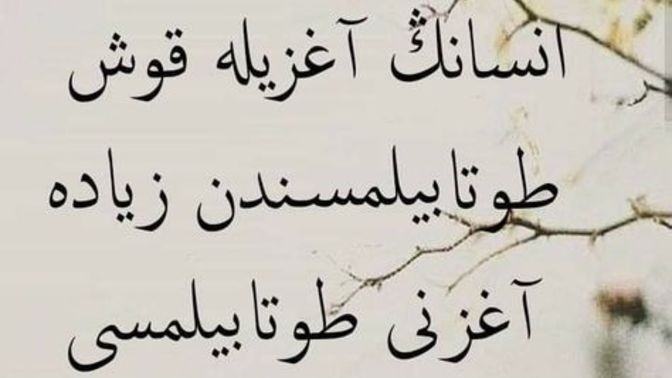 انسانڭ آغزيله قوش
طوتابيلمسندن زياده
آغزنی طوتابيلمسی